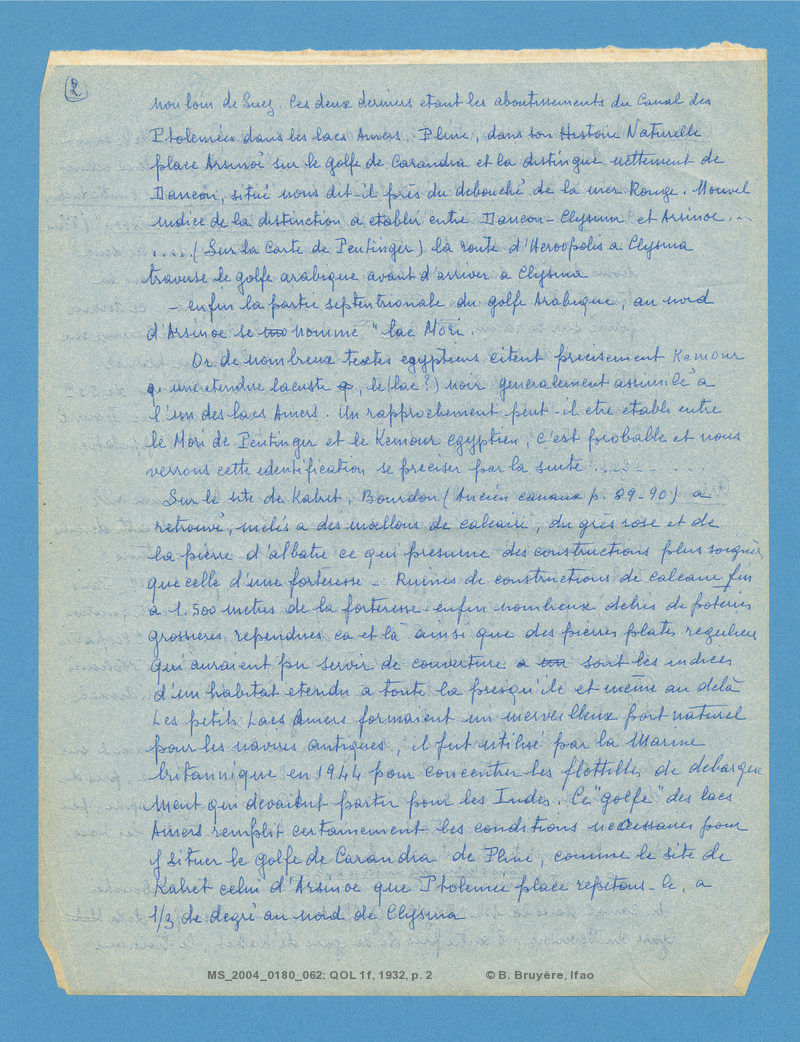 2
non loin de Suez. Ces deux derniers etant les aboutissements du Canal des
Ptolemées dans les lacs Amers. Pline, dans son Histoire Naturelle
place Arsinoé sur le golfe de Carandra et la distingue nettement de
Daneon, situé nous dit-il près du debouché de la mer Rouge. Nouvel
indice de la distinction a etablir entre Daneon-Clysma et Arsinoe...
.....(Sur la Carte de Peutinger) la route d'Heroopolis a Clysma
traverse le golfe arabique avant d'arriver a Clysma
- enfin la partie septentrionale du golfe Arabique, au nord
d'Arsinoe se nomme "lac Mori.
Or de nombreux textes egyptiens citent precisement Kemour
une etendue lacustre, le (lac?) noir generalement assimilé a
l'un des lacs Amers. Un rapprochement peut-il etre etabli entre
le Mori de Peutinger et le Kemour egyptien, c'est probable et nous
verrons cette identification se preciser par la suite .....
Sur le site de Kabret, Bourdon (Ancien canaux p. 89-90) a
retrouvé, mêlés a des moellons de calcaire, du grès rose et de
la pierre d'albatre ce qui presume des constructions plus soignées
que celle d'une forteresse - Ruines de constructions de calcaire fin
à 1.500 metres de la forteresse. enfin nombreux debris de poteries
grossieres rependues ca et là ainsi que des pierres plates regulieres
qui auraient pu servir de couverture a sont les indices
d'un habitat etendu a toute la presqu'ile et même au delà
Les petits Lacs Amers formaient un merveilleux port naturel
pour les navires antiques, il fut utilisé par la Marine
britannique en 1944 pour concentrer les flottilles de debarque
ment qui devaient partir pour les Indes. Ce "golfe" des lacs
Amers remplit certainement les conditions necessaires pour
y situer le golfe de Carandra de Pline, comme le site de
Kabret celui d'Arsinoe que Ptolemee place repetons-le, a
1/3 de degré au nord de Clysma
MS_2004_0180_062: QOL 1f, 1932, p. 2 © B. Bruyère, Ifao